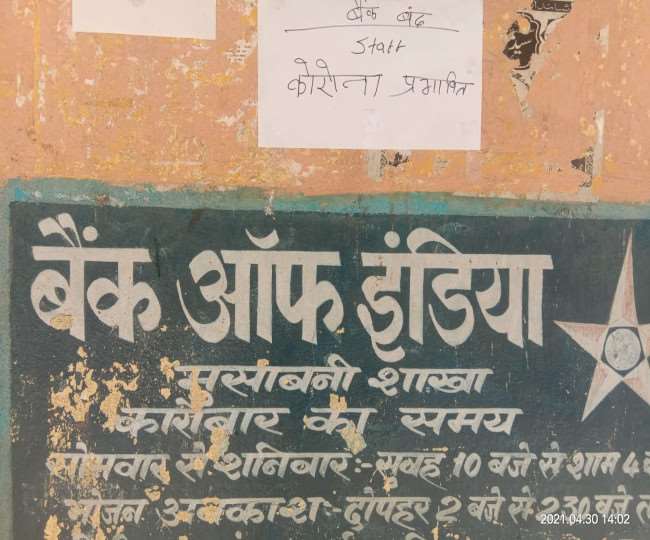 बैंक बंद
Staff
कोरोना प्रभावित
बैंक ऑफ इंडिया
मुसाबनी शाखा
कारोबार का समय
सोमवार से शनिवार:- सुबह 10 बजे से शाम 4
भोजन अवकाश:- दोपहर 2 बजे से 2.30 बजे
2021.04.30 14:02